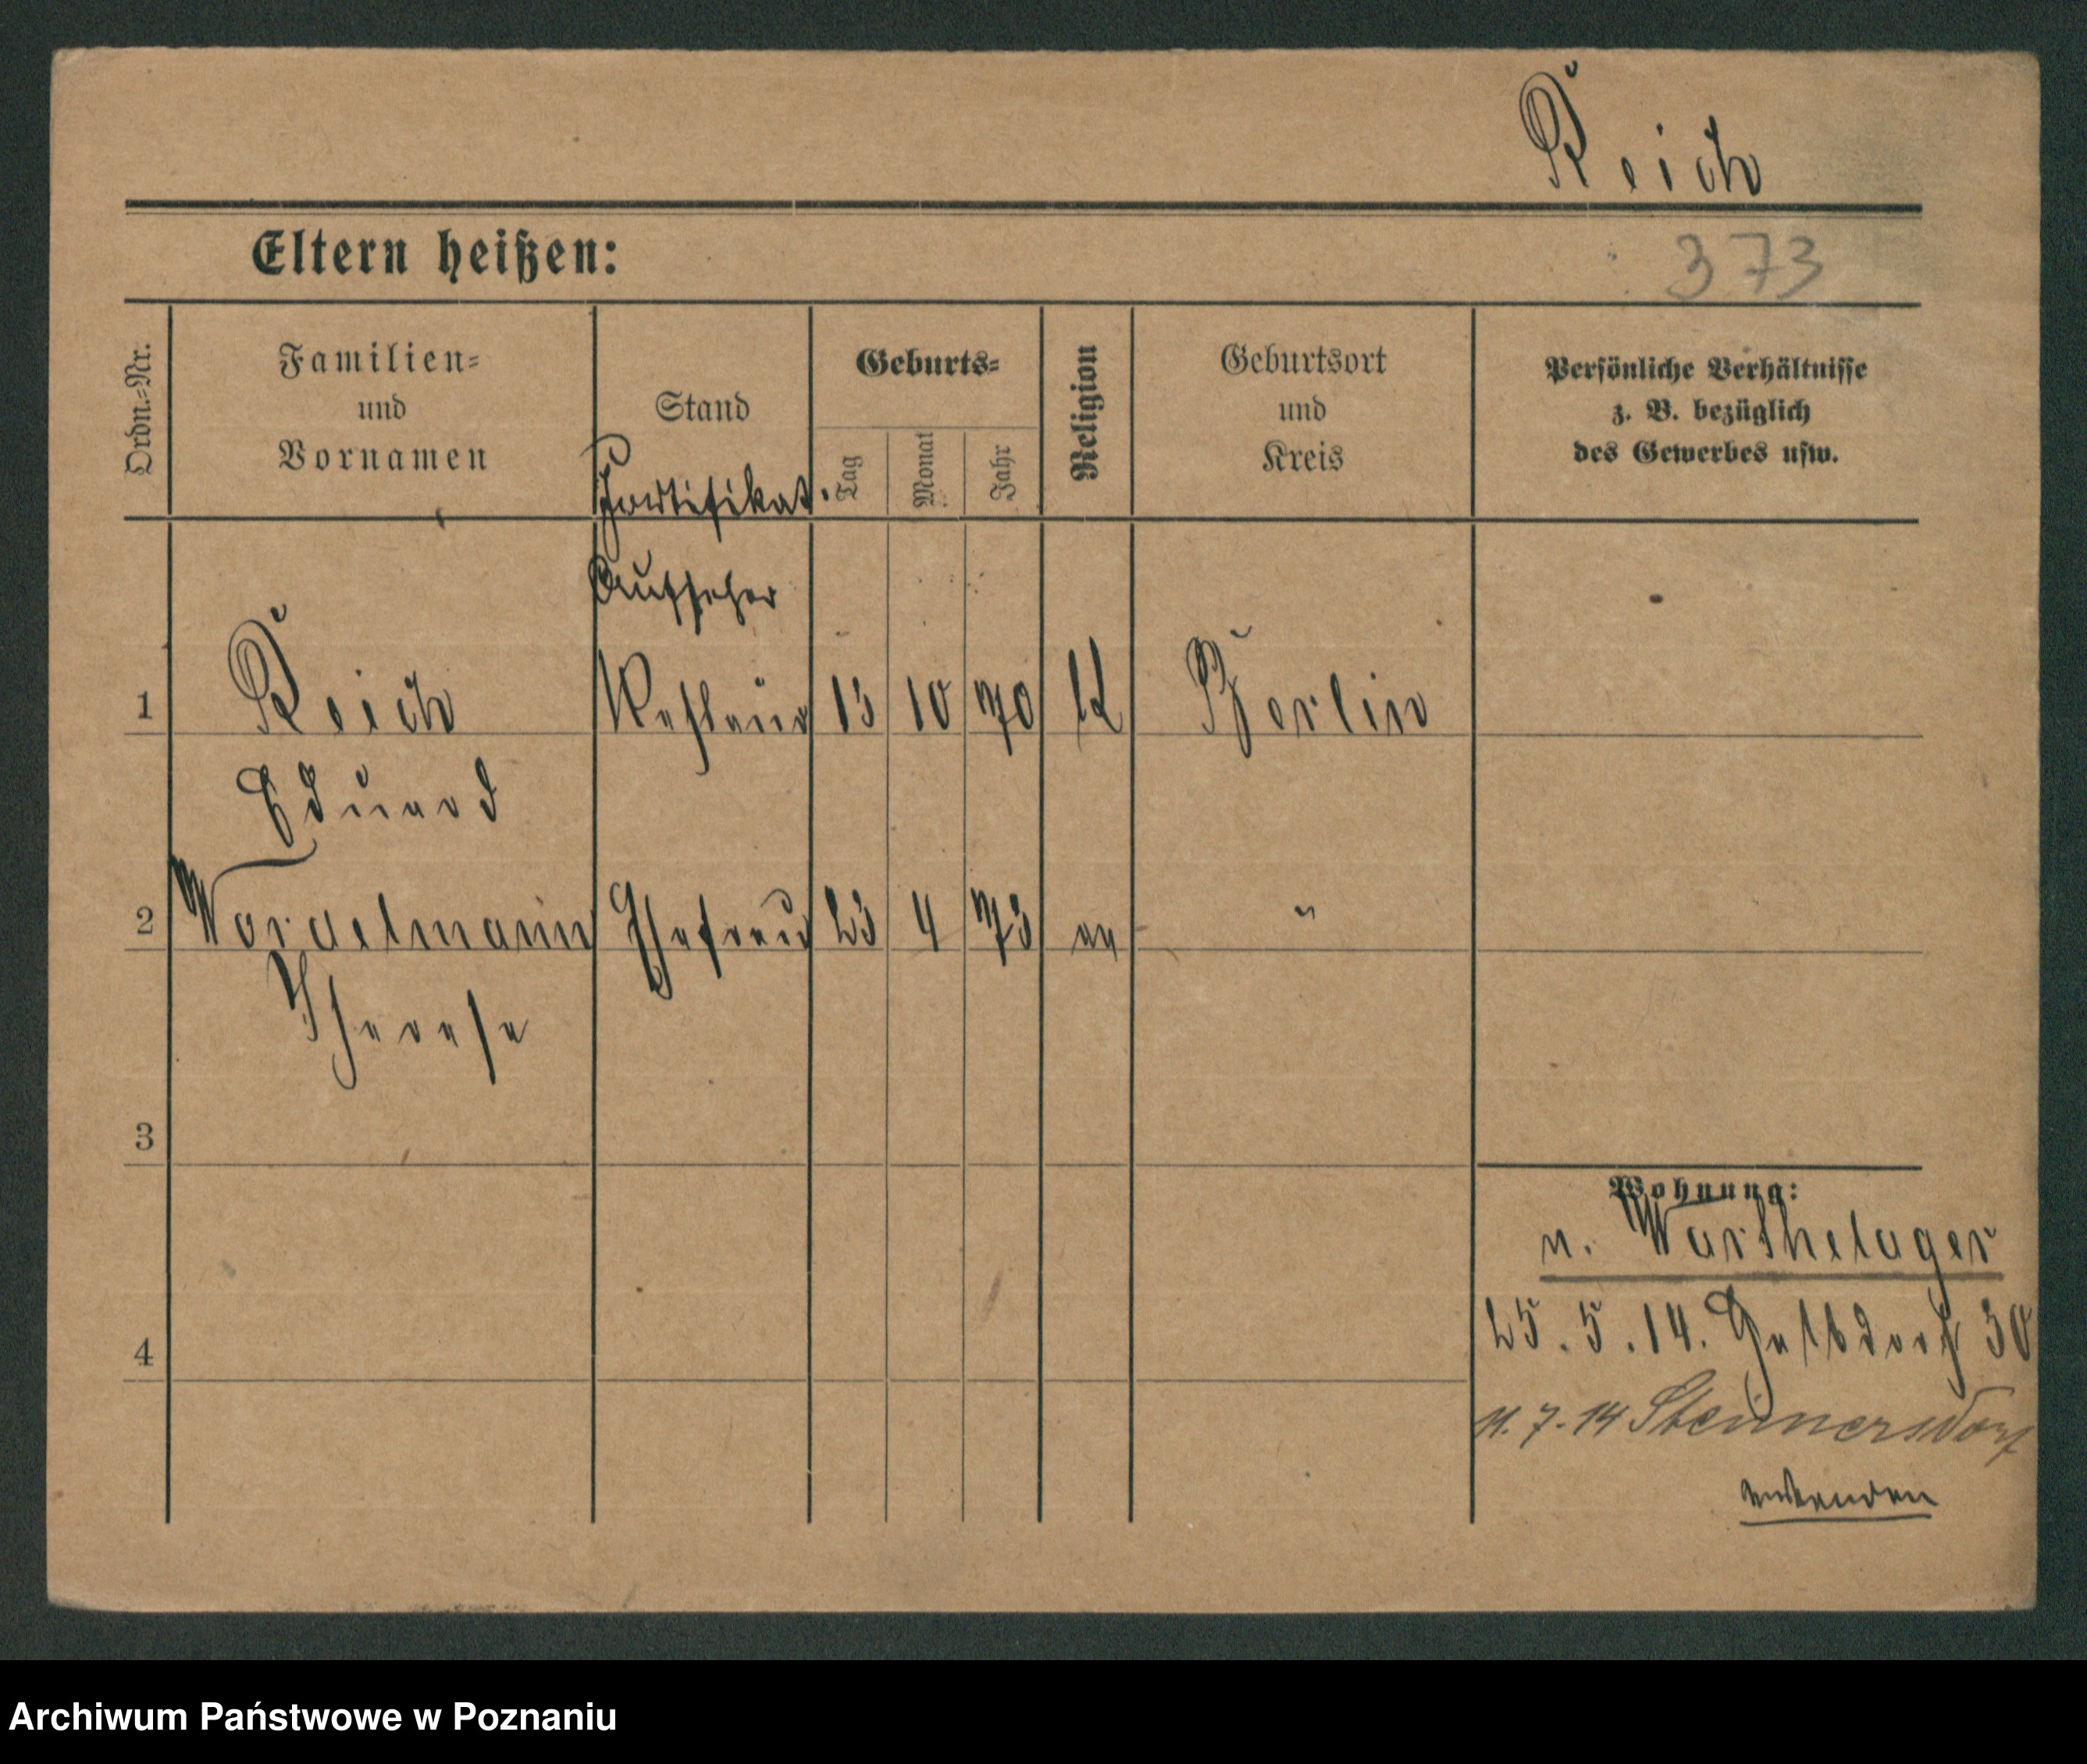 Reich
Eltern heißen:
373
Ordn.=Nr.
Familien=
und
Vornamen
Stand
Geburts=
Tag
Monat
Jahr
Religion
Geburtsort
und
Kreis
Persönliche Verhältnisse
z. B. bezüglich
des Gewerbes usw.
Fortifikat.
Aufseher
1 Reich 13 10 70 K Berlin
Eduard
2 Ehefrau 23 4 73 ev "
Therese
3
4
Wohnung:
n. Warthelager
25.5.14. 30
11.7.14
umwenden
Archiwum Państwowe w Poznaniu